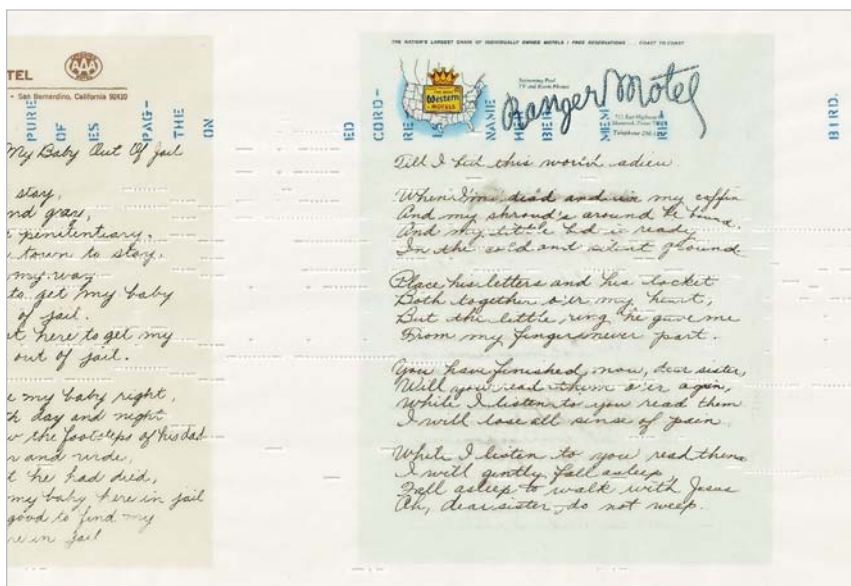 TEL
AAA
• San Bernardino, California 92410
My Baby Out Of Jail
stay,
nd gray,
penitentiary.
town to stay.
my way
to get my baby
of jail.
t here to get my
out of jail.
e my baby right,
th day and night
w the footsteps of his dad
r and wide,
t he had died,
my baby here in jail
good to find my
re in jail
PURE
OF
ES
PAG–
THE
ON
ED
CORD–
RE
NAME
BER
MEM
BIRD.
THE NATION'S LARGEST CHAIN OF INDIVIDUALLY OWNED MOTELS / FREE RESERVATIONS . . . COAST TO COAST
Best
Western
MOTELS
Swimming Pool
TV and Room Phones
Ranger Motel
Telephone
Till I bid this world adieu
When I'm dead and in my coffin
And my shroud's around me bound,
And my little bed is ready
In the cold and silent ground
Place his letters and his locket
Both together o'er my heart,
But the little ring he gave me
From my finger never part.
You have finished, now, dear sister,
Will you read them o'er again,
While I listen to you read them
I will lose all sense of pain
While I listen to you read them
I will gently fall asleep
Fall asleep to walk with Jesus
Oh, dear sister, do not weep.